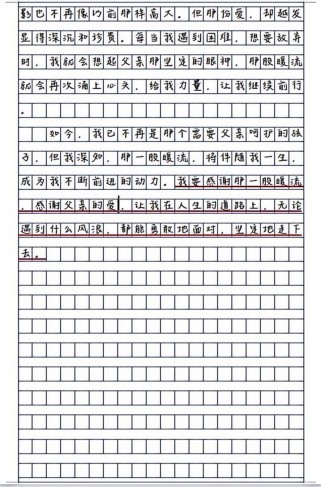 影已不再像以前那样高大。但那份爱，却越发
显得深沉和珍贵。每当我遇到困难，想要放弃
时，我就会想起父亲那坚定的眼神，那股暖流
就会再次涌上心头，给我力量，让我继续前行
。
如今，我已不再是那个需要父亲呵护的孩
子，但我深知，那一股暖流，将伴随我一生，
成为我不断前进的动力。我要感谢那一股暖流
，感谢父亲的爱，让我在人生的道路上，无论
遇到什么风浪，都能勇敢地面对，坚定地走下
去。